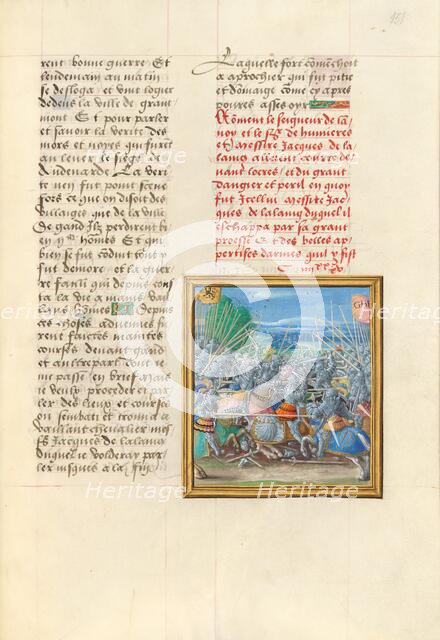 rent bonne guerre Et
lendemain au matin
se desloga et vint loger
dedens la ville de grant
mont Et pour parler
et savoir la verite des
mors et noyes qui furent
au lever le siege
dudenarde La veri
te nen fut point sceue
fors ce que on disoit des
villaiges que de la ville
De gand Ilz perdirent bi
en hommes Et qui
bien se fut conduit tout y
fut demore et la guer
re failli qui depuis cous
ta la vie a mains vail
lans hommes
ces choses advenues fu
rent faictes maintes
courses devant gand
et aultre part dont Je
me passe en brief Mais
Je vueil proceder et par
ler des lieux et courses
ou sembati et trouva le
vaillant chevalier mes
sire Jacques de lalaing
Duquel Je vouldray par
ler jusques a la fin
151
Laquelle fort commenchoit
a aprochier qui fut pitie
et dommaige come cy apres
pourres asses oyr
Coment le seigneur de lan
noy et le sgr de humieres
et Messire Jacques de la
laing allerent courre de
vant locres et du grant
dangier et peril en quoy
fut Icellui messire Jac
ques de lalaing duquel il
eschappa par sa grant
proesse Et des belles ap
pertises darmes qui y fist
GHE
Heritage
Heritage
Heritage
Heritage